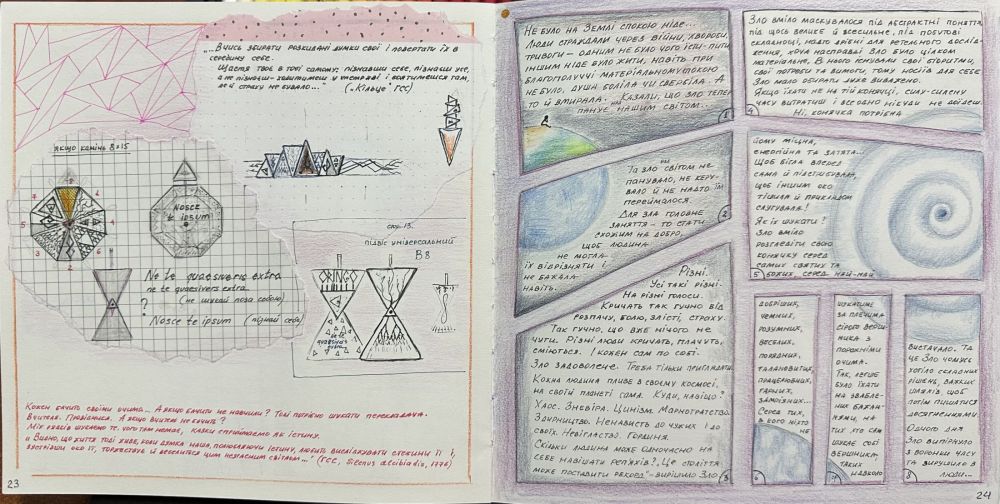 „...Вчись збирати розкидані думки свої і повертати їх в
середину себе.
Щастя твоє в тобі самому: пізнавши себе, пізнаєш усе,
а не пізнаєш – ходитимеш у темряві і боятимешся там,
де й страху не бувало...”
("Кільце" ГСС)
якщо камінь 8х15
Nosce
te ipsum
Ne te quaesiveris extra
ne te quaesivers extra.
(не шукай поза собою)
?
Nosce te ipsum (пізнай себе)
стр. 13.
підвіс універсальний
В 8
ORINGO
ne te
quaesiveris
extra.
Кожен бачить своїми очима... А якщо бачити не навчили? Тоді потрібно шукати перекладача.
Вчителя. Провідника. А якщо вчитель не бачить?
Між рядків шукаємо те, чого там немає, казки сприймаємо як істину.
„Видно, що життя тоді живе, коли думка наша, полюбляючи істину, любить висліджувати стежини її і,
зустрівши око її, торжествує й веселиться цим незгасним світлом...” (ГСС, Silenus Alcibiadis, 1776)
23
Не було на Землі спокою ніде...
Люди страждали через війни, хвороби,
тривоги – одним не було чого їсти-пити,
іншим ніде було жити, навіть при
благополуччі матеріальному спокою
не було, душа боліла чи свербіла. А
то й вмирала. Казали, що зло тепер
панує над нашим світом...
1
Та зло світом не
панувало, не керу-
вало й не надто ним
переймалося.
Для зла головне
заняття – то стати
схожим на добро,
щоб людина
не могла
їх відрізняти і
не бажала
навіть.
2
Різні.
Усі такі різні.
На різні голоси.
Кричать так гучно від
розпачу, болю, злісті, страху.
Так гучно, що вже нічого не
чути. Різні люди кричать, плачуть,
сміються. І кожен сам по собі.
Зло задоволене. Треба тільки приглядати.
Кожна людина пливе в своєму космосі,
на своїй планеті сама. Куди, навіщо?
Хаос. Зневіра. Цинізм. Марнотратство.
Здирництво. Ненависть до чужих і до
своїх. Невігластво. Гординя.
Скільки людина може одночасно на
себе навішати реп'яхів? „Це століття
може поставити рекорд” – вирішило Зло
3
Зло вміло маскувалося під абстрактні поняття,
під щось велике й всесильне, під побутові
складнощі, надто дрібні для ретельного дослід-
ження, хоча насправді Зло було цілком
матеріальне. В нього існували свої алгоритми,
свої потреби та вимоги, тому носіїв для себе
Зло мало обирати дуже виважено.
Якщо їхати не на тій конячці, силу-силенну
часу витратиш і все одно нікуди не доїдеш.
Ні, конячка потрібна
4
йому міцна,
енергійна та затята...
Щоб бігла вперед
сама й підстрибувала,
щоб іншим око
тішила й прикладом
слугувала!
Як їх шукати?
Зло вміло
розгледіти свою
конячку серед
самих святих та
божих, серед най-най
5
добріших,
чемних,
розумних,
веселих,
порядних,
талановитих,
працьовитих,
гарних,
заможних...
Серед тих,
в кого ніхто
не
6
шукатиме
за плечима
сірого верш-
ника з
порожніми
очима.
Так, легше
було їхати
на звабле-
них бажан-
нями, на
тих хто сам
шукає собі
вершника,
таких
навколо
7
вистачало. Та
це Зло чомусь
хотіло складних
рішень, важких
шляхів, щоб
потім пишатися
досягненнями.
Одного дня
Зло випірнуло
з воронки часу
та вирушило в
люди...
8
24